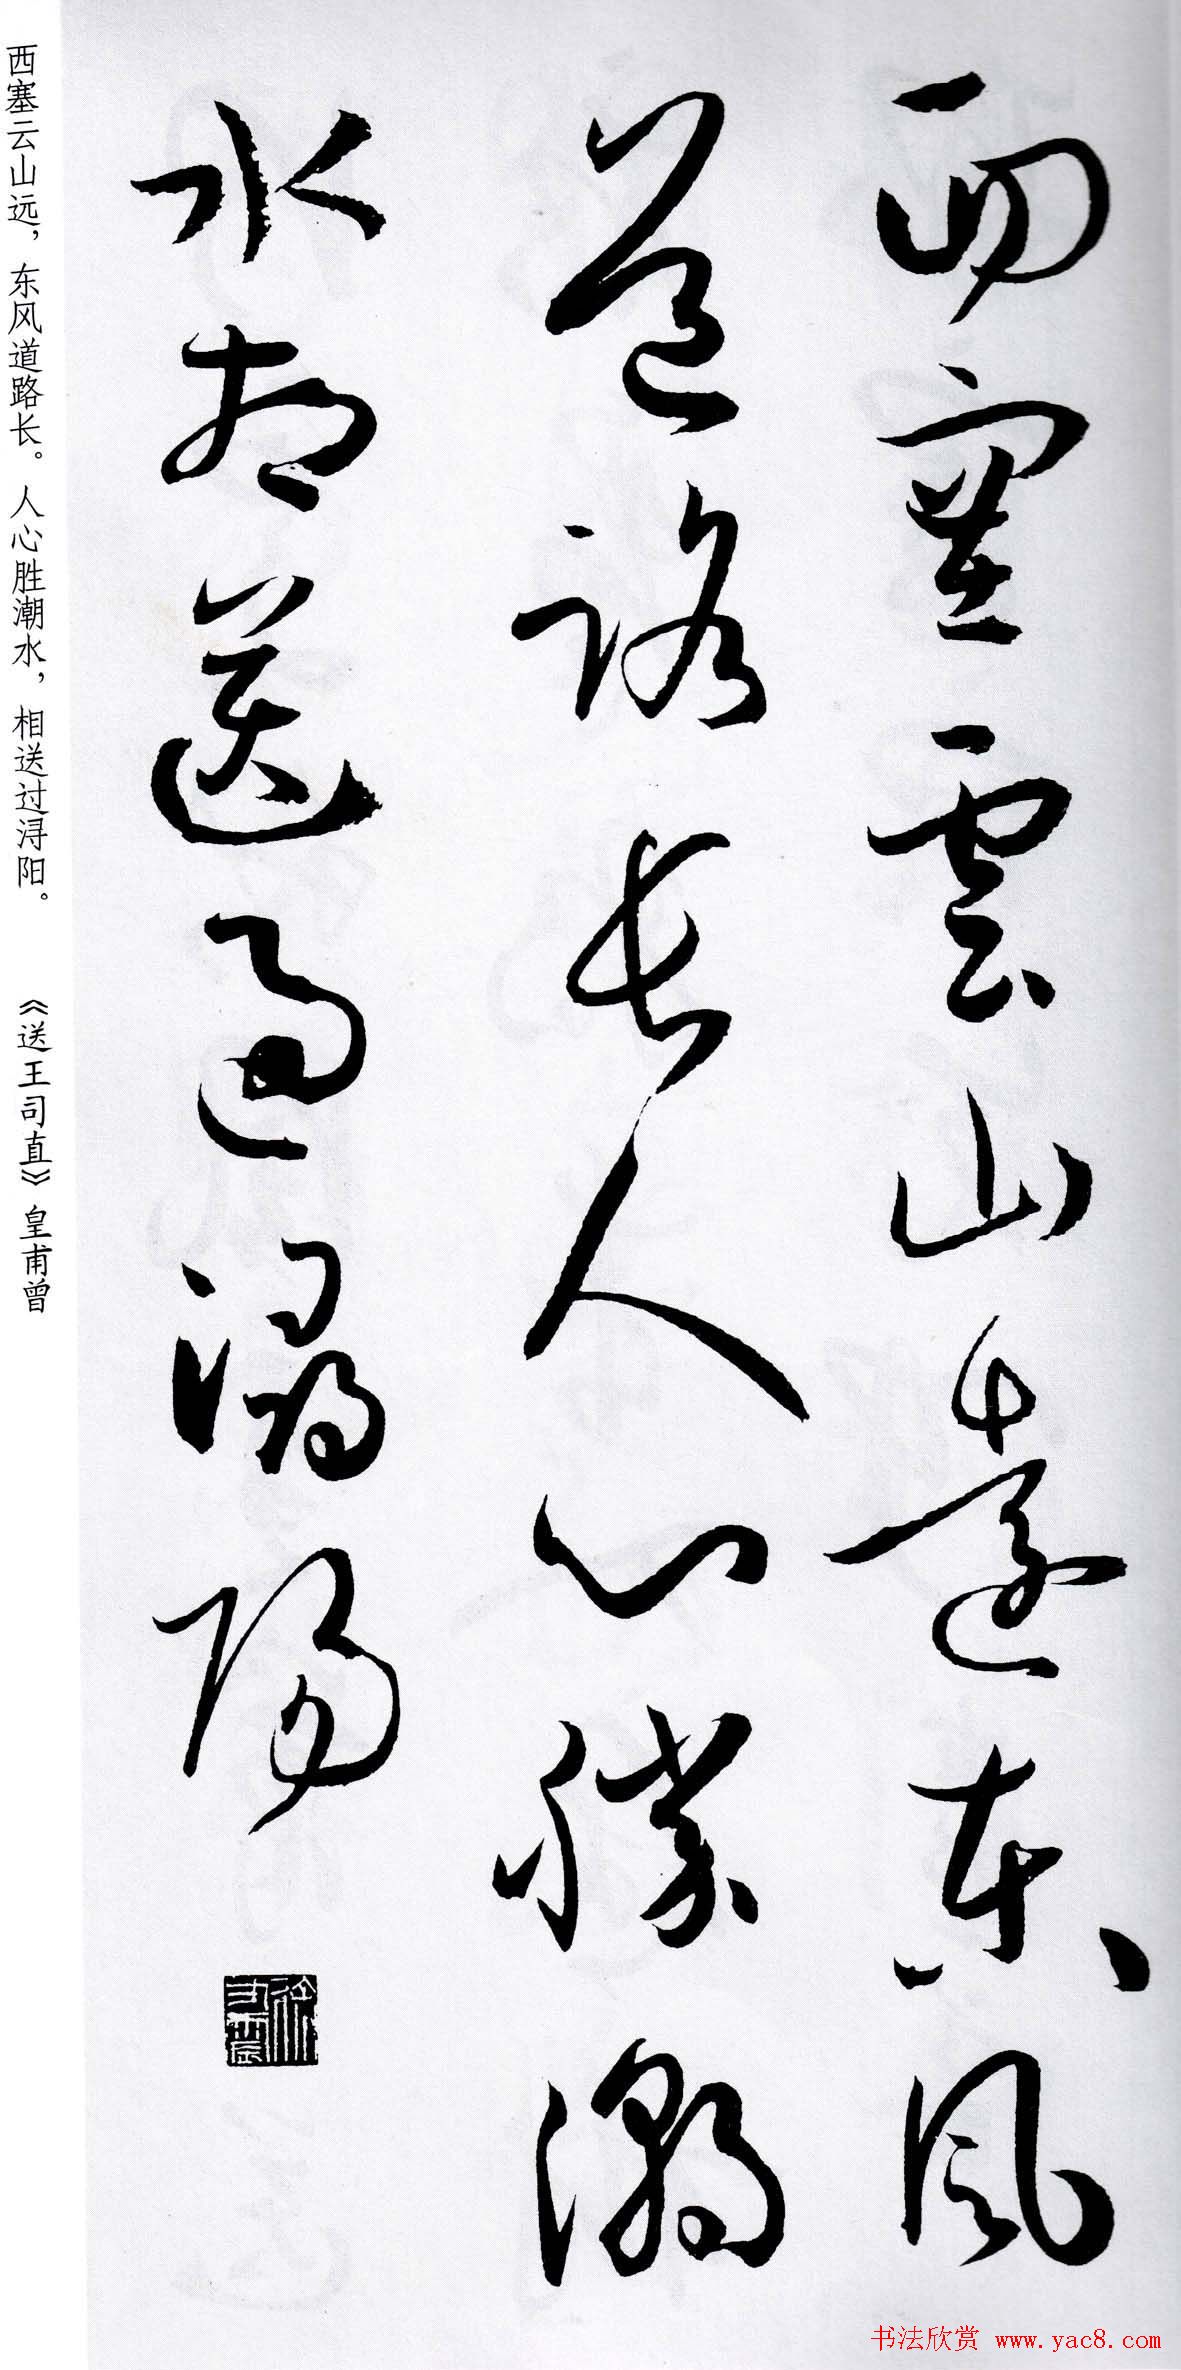 西塞雲山遠東風
道路長人心勝潮
水相送過潯陽
西塞云山远，东风道路长。人心胜潮水，相送过浔阳。 《送王司直》皇甫曾
书法欣赏 www.yac8.com